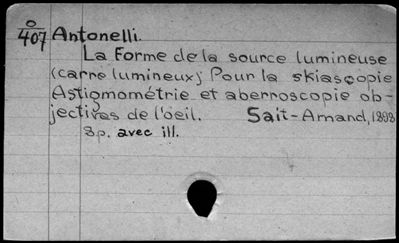 O
407 Antonelli.
La Forme de la source lumineuse
(carre lumineux) Pour la skiascopie
Astigmométrie et aberroscopie ob-
jectives de l'oeil. Sait-Amand, 1898
8p. avec ill.